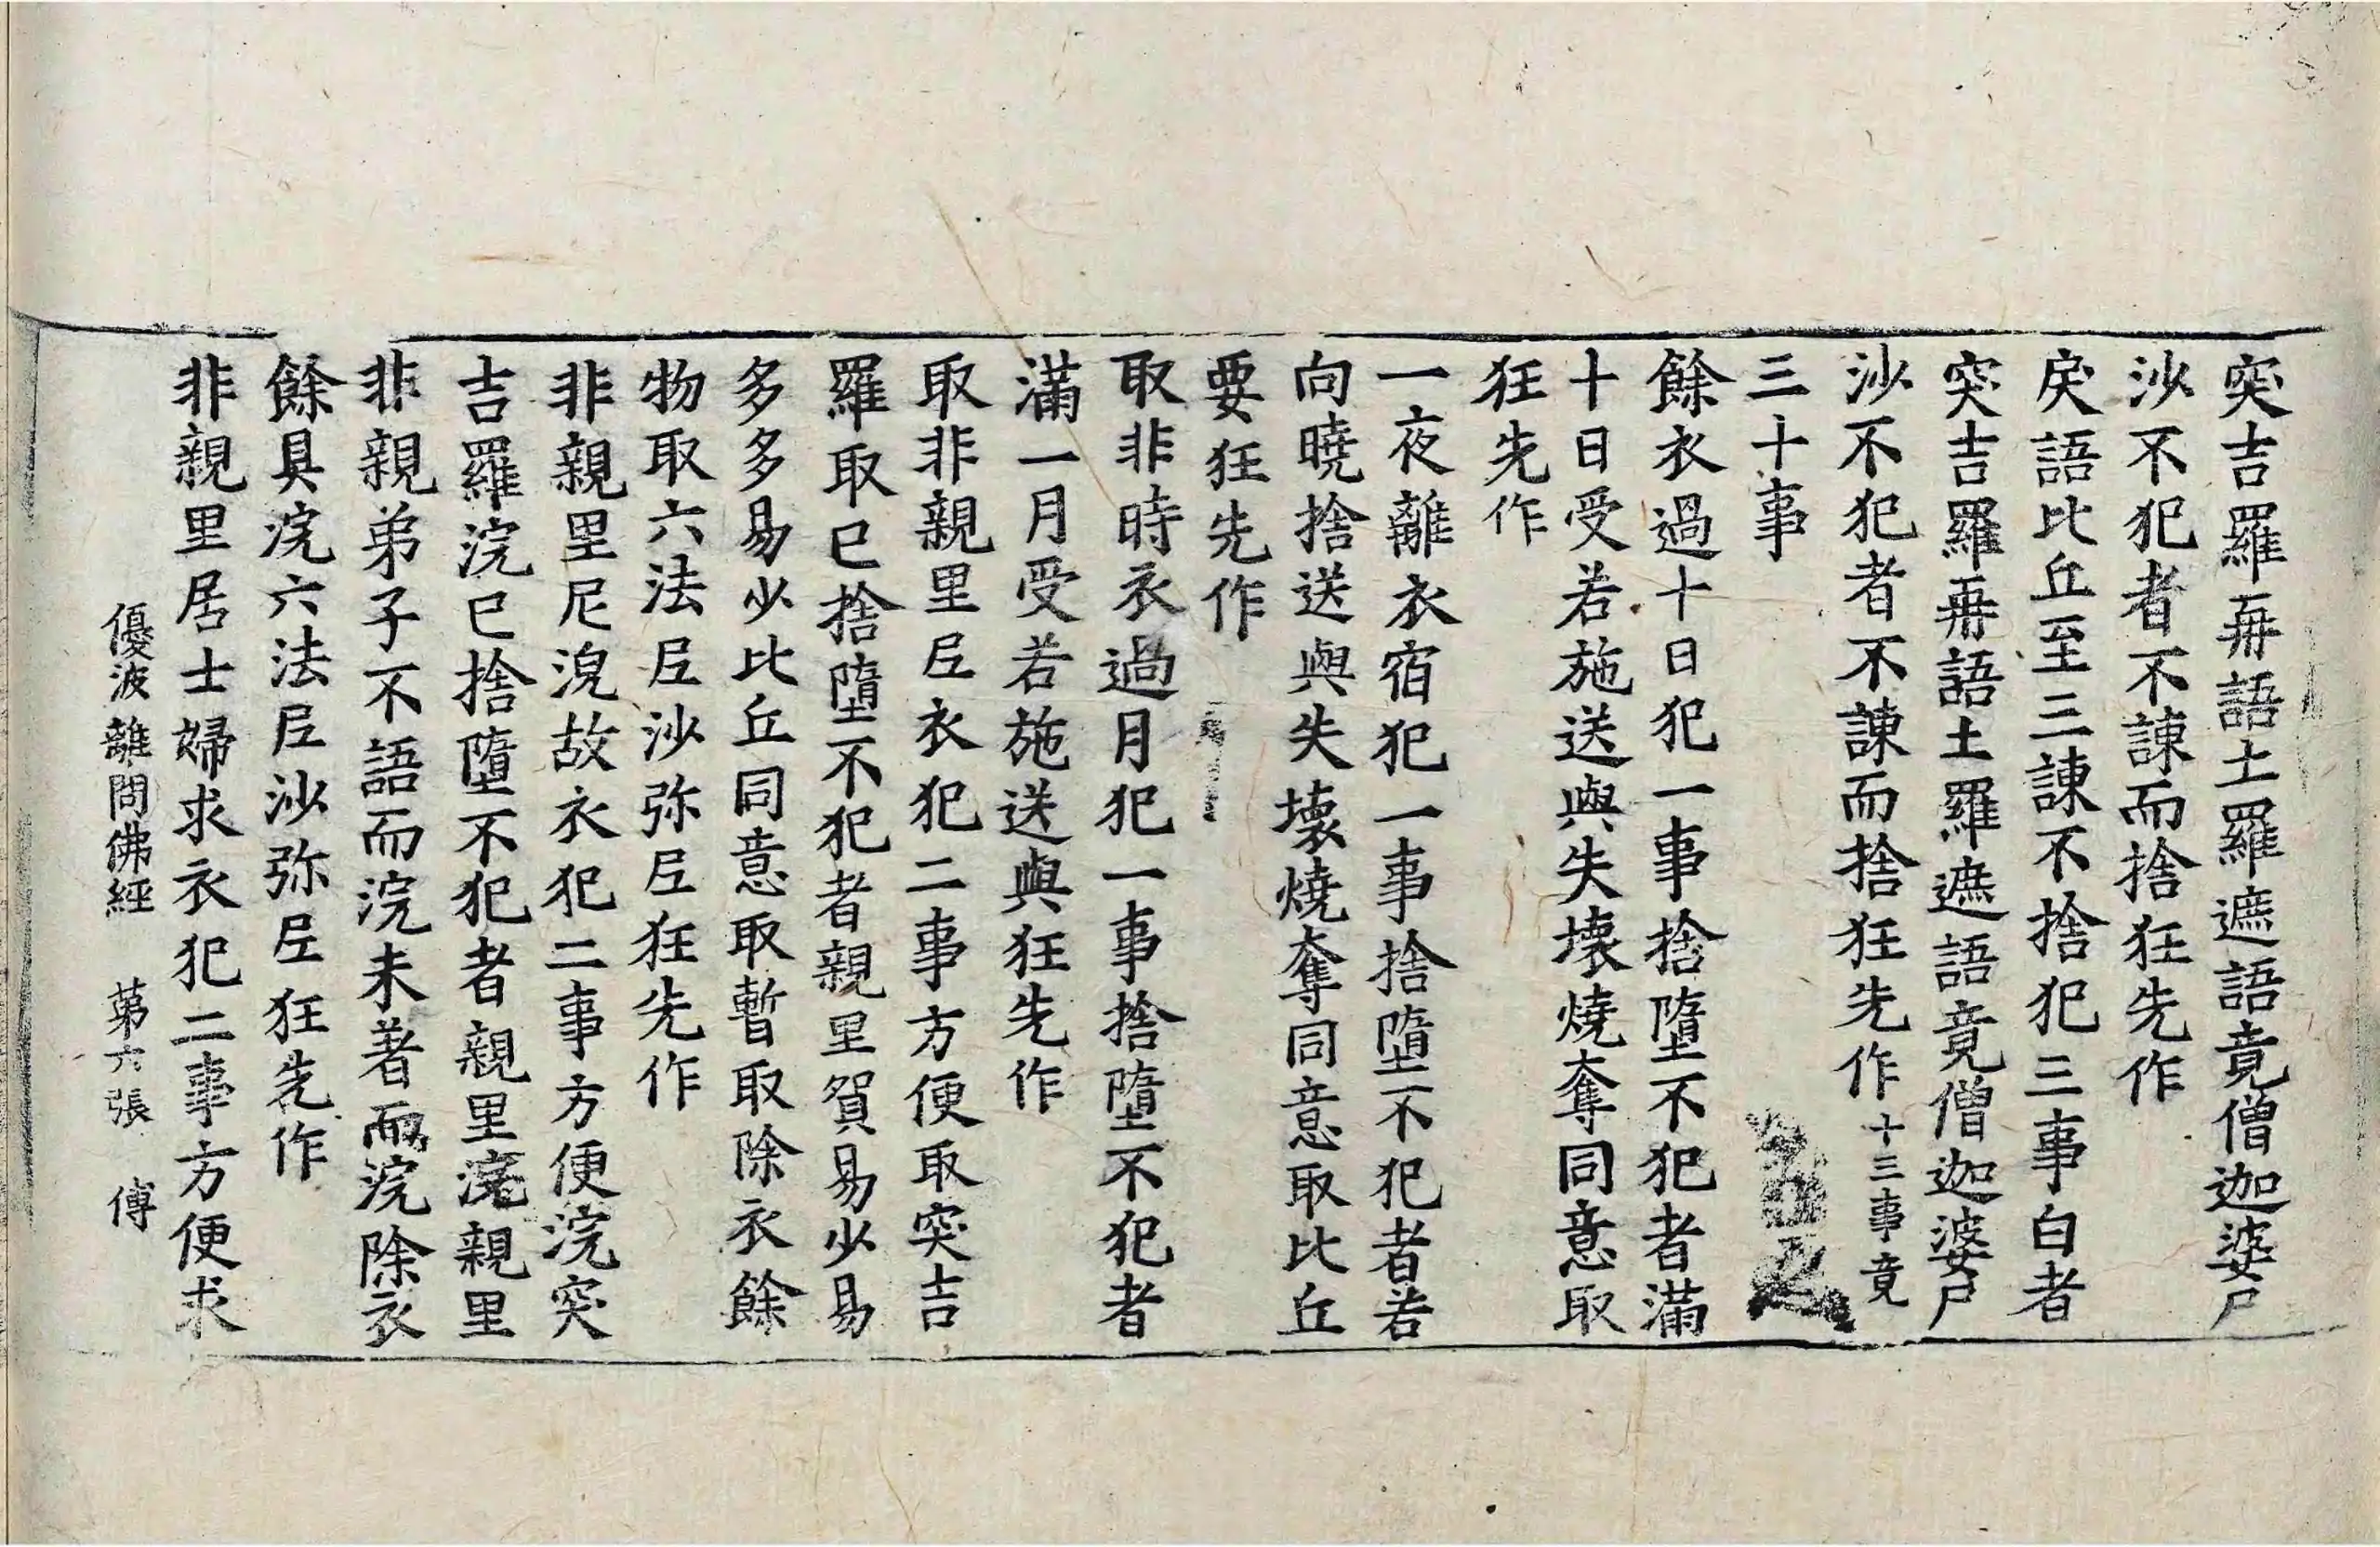 突吉羅再語土羅遮語竟僧迦婆尸
沙不犯者不諫而捨狂先作
戾語比丘至三諫不捨犯三事白者
突吉羅再語土羅遮語竟僧迦婆尸
沙不犯者不諫而捨狂先作十三事竟
三十事
餘衣過十日犯一事捨墮不犯者滿
十日受若施送與失壞燒奪同意取
狂先作
一夜離衣宿犯一事捨墮不犯者若
向曉捨送與失壞燒奪同意取比丘
要狂先作
取非時衣過月犯一事捨墮不犯者
滿一月受若施送與狂先作
取非親里𡰱衣犯二事方便取突吉
羅取已捨墮不犯者親里貿易少易
多多易少比丘同意取暫取除衣餘
物取六法𡰱沙弥𡰱狂先作
非親里尼浣故衣犯二事方便浣突
吉羅浣已捨墮不犯者親里浣親里
非親弟子不語而浣未著而浣除衣
餘具浣六法𡰱沙弥𡰱狂先作
非親里居士婦求衣犯二事方便求
優波離問佛經 苐六張 傅